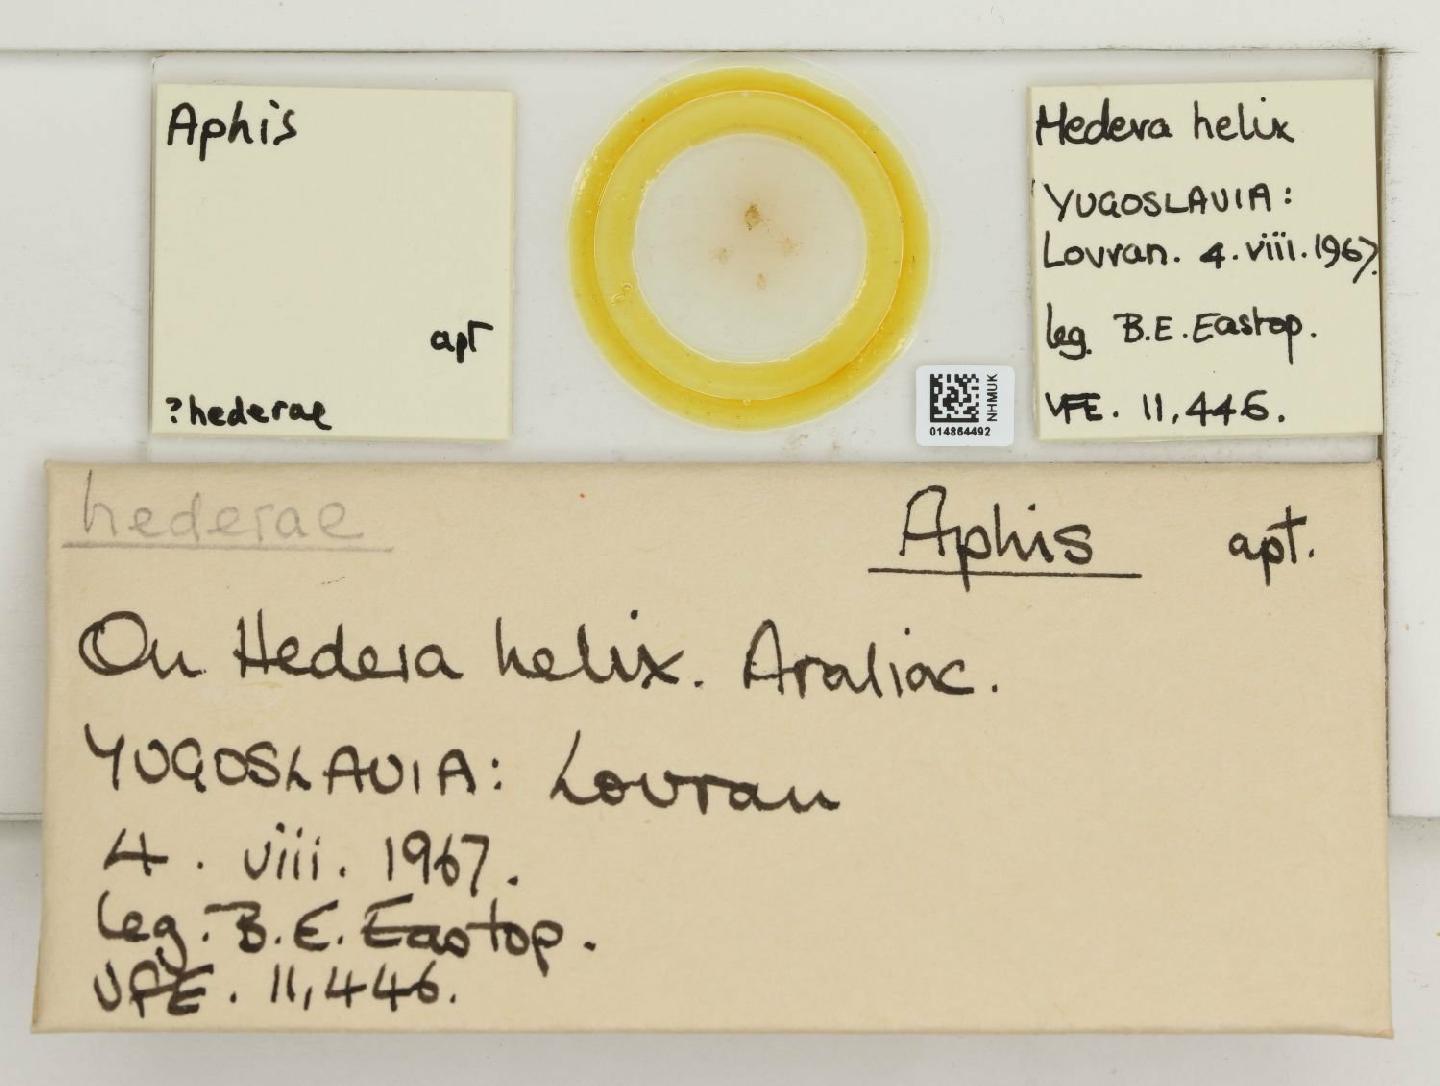 Aphis
apt
?hederae
Hedera helix
YUGOSLAVIA:
Lovran. 4. viii. 1967.
leg. B.E. Eastop.
VFE. 11,446.
NHMUK
014864492
hederae
Aphis apt.
On Hedera helix. Araliac.
YUGOSLAVIA: Lovran
4. viii. 1967.
leg. B.E. Eastop.
VFE. 11,446.